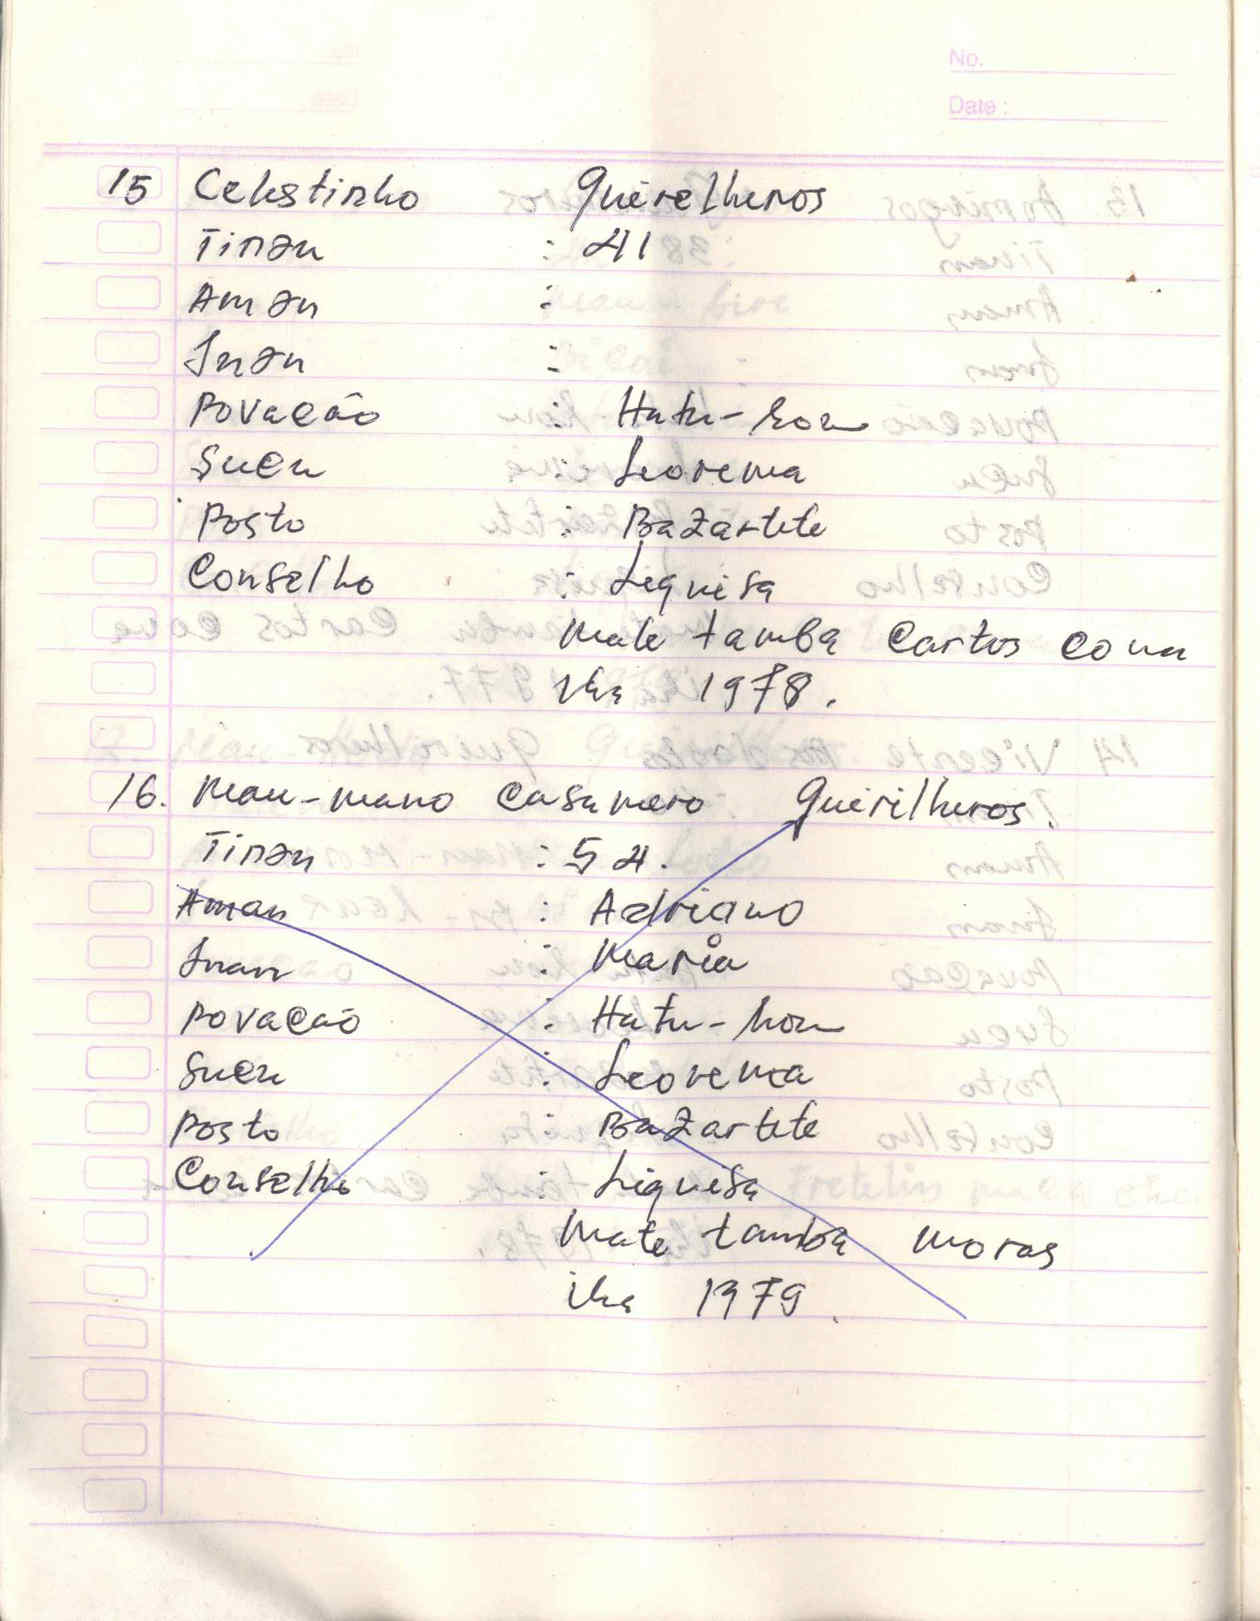 No.
Date :
15 Celestinho Querelheros
Tinan : 41
Aman :
Inan :
Povacão : Hatu-hou
Sucu : Leorema
Posto : Bazartete
Conselho : Liquisa
Mate tamba Cartos cona
iha 1978.
16. Mau-mano Casamero Querilheros.
Tinan : 54.
Aman : Adriano
Inan : Maria
Povacão : Hatu-hou
Sucu : Leorema
Posto : Bazartete
Conselho : Liquisa
Mate tamba moras
iha 1979.